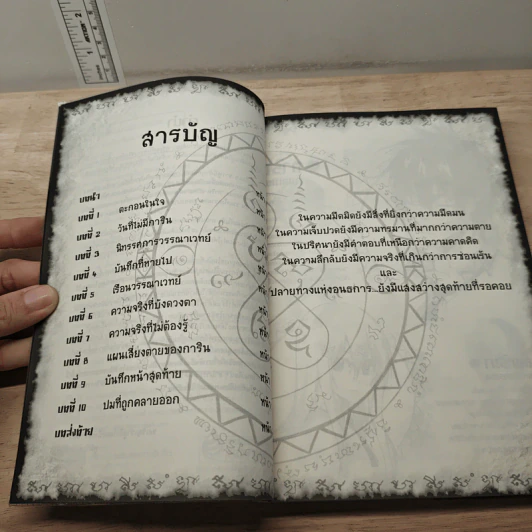 สารบัญ
บทนำ
บทที่ 1 ตะกอนในใจ
บทที่ 2 วันที่ไม่มีการิน
บทที่ 3 นิทรรศการวรรณาเวทย์
บทที่ 4 บันทึกที่หายไป
บทที่ 5 เรือนวรรณาเวทย์
บทที่ 6 ความจริงที่ยังดวงตา
บทที่ 7 ความจริงที่ไม่ต้องรู้
บทที่ 8 แผนเสี่ยงตายของการิน
บทที่ 9 บันทึกหน้าสุดท้าย
บทที่ 10 ปมที่ถูกคลายออก
บทส่งท้าย
ในความมืดมิดยังมีสิ่งที่ยิ่งกว่าความมืดมน
ในความเจ็บปวดยังมีความทรมานที่มากกว่าความตาย
ในปริศนายังมีคำตอบที่เหนือกว่าความคาดคิด
ในความลึกลับยังมีความจริงที่เกินกว่าการซ่อนเร้น
และ
ปลายทางแห่งอนธการ...ยังมีแสงสว่างสุดท้ายที่รอคอย